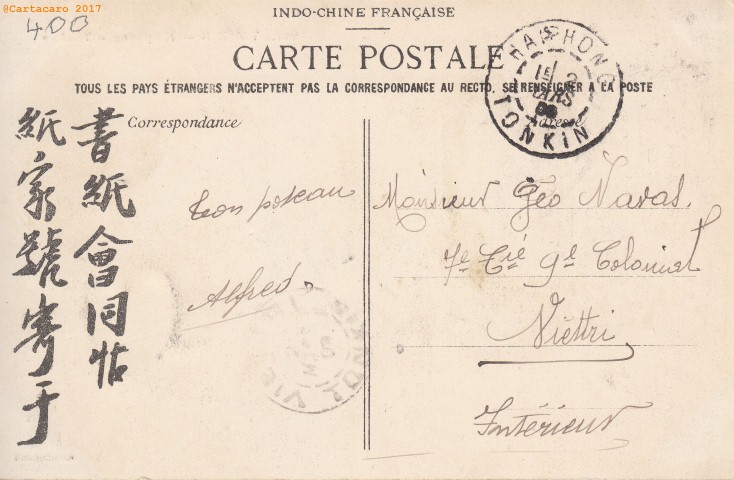 @Cartacaro 2017
400
INDO-CHINE FRANÇAISE
CARTE POSTALE
TOUS LES PAYS ÉTRANGERS N'ACCEPTENT PAS LA CORRESPONDANCE AU RECTO, SE RENSEIGNER A LA POSTE
HAIPHONG
MARS
TONKIN
Correspondance
Adresse
書紙會同帖
紙家號寄于
Alfred.
Monsieur Géo Naras.
Colonial
Viéttri
Intérieur